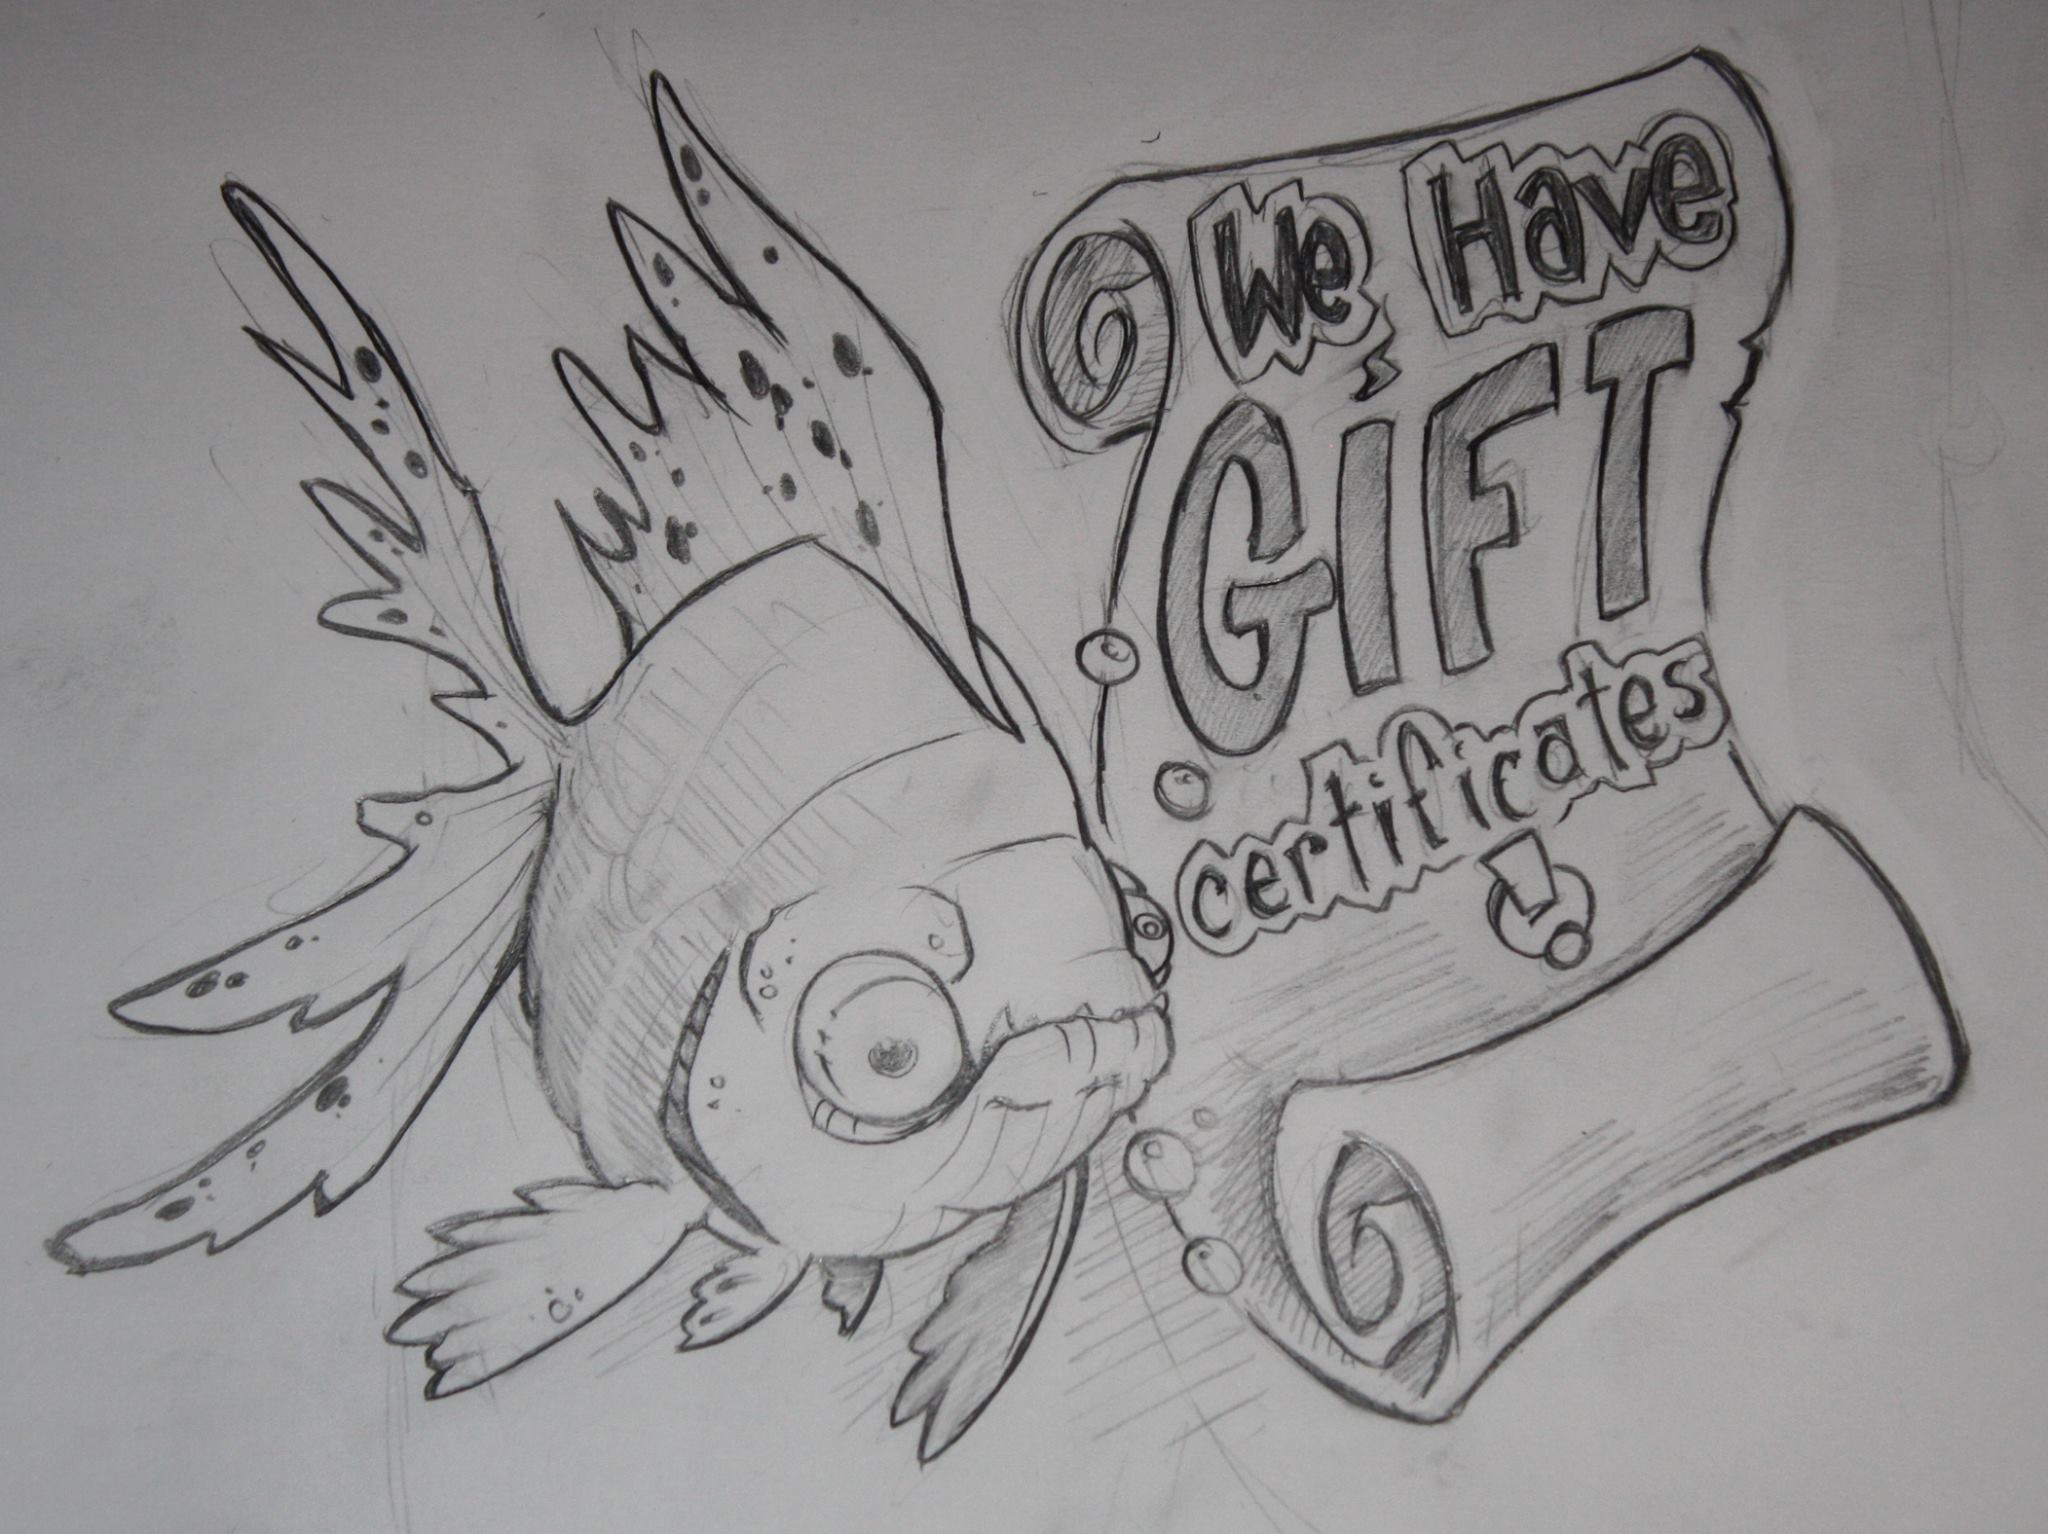 We Have
GIFT
certificates
!